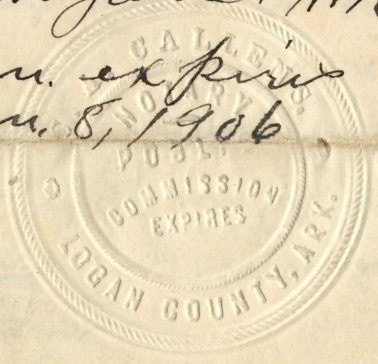 n. expires
n. 8, 1906
CALLEN S.
NOTARY
PUBL
COMMISSION
EXPIRES
LOGAN COUNTY, ARK.